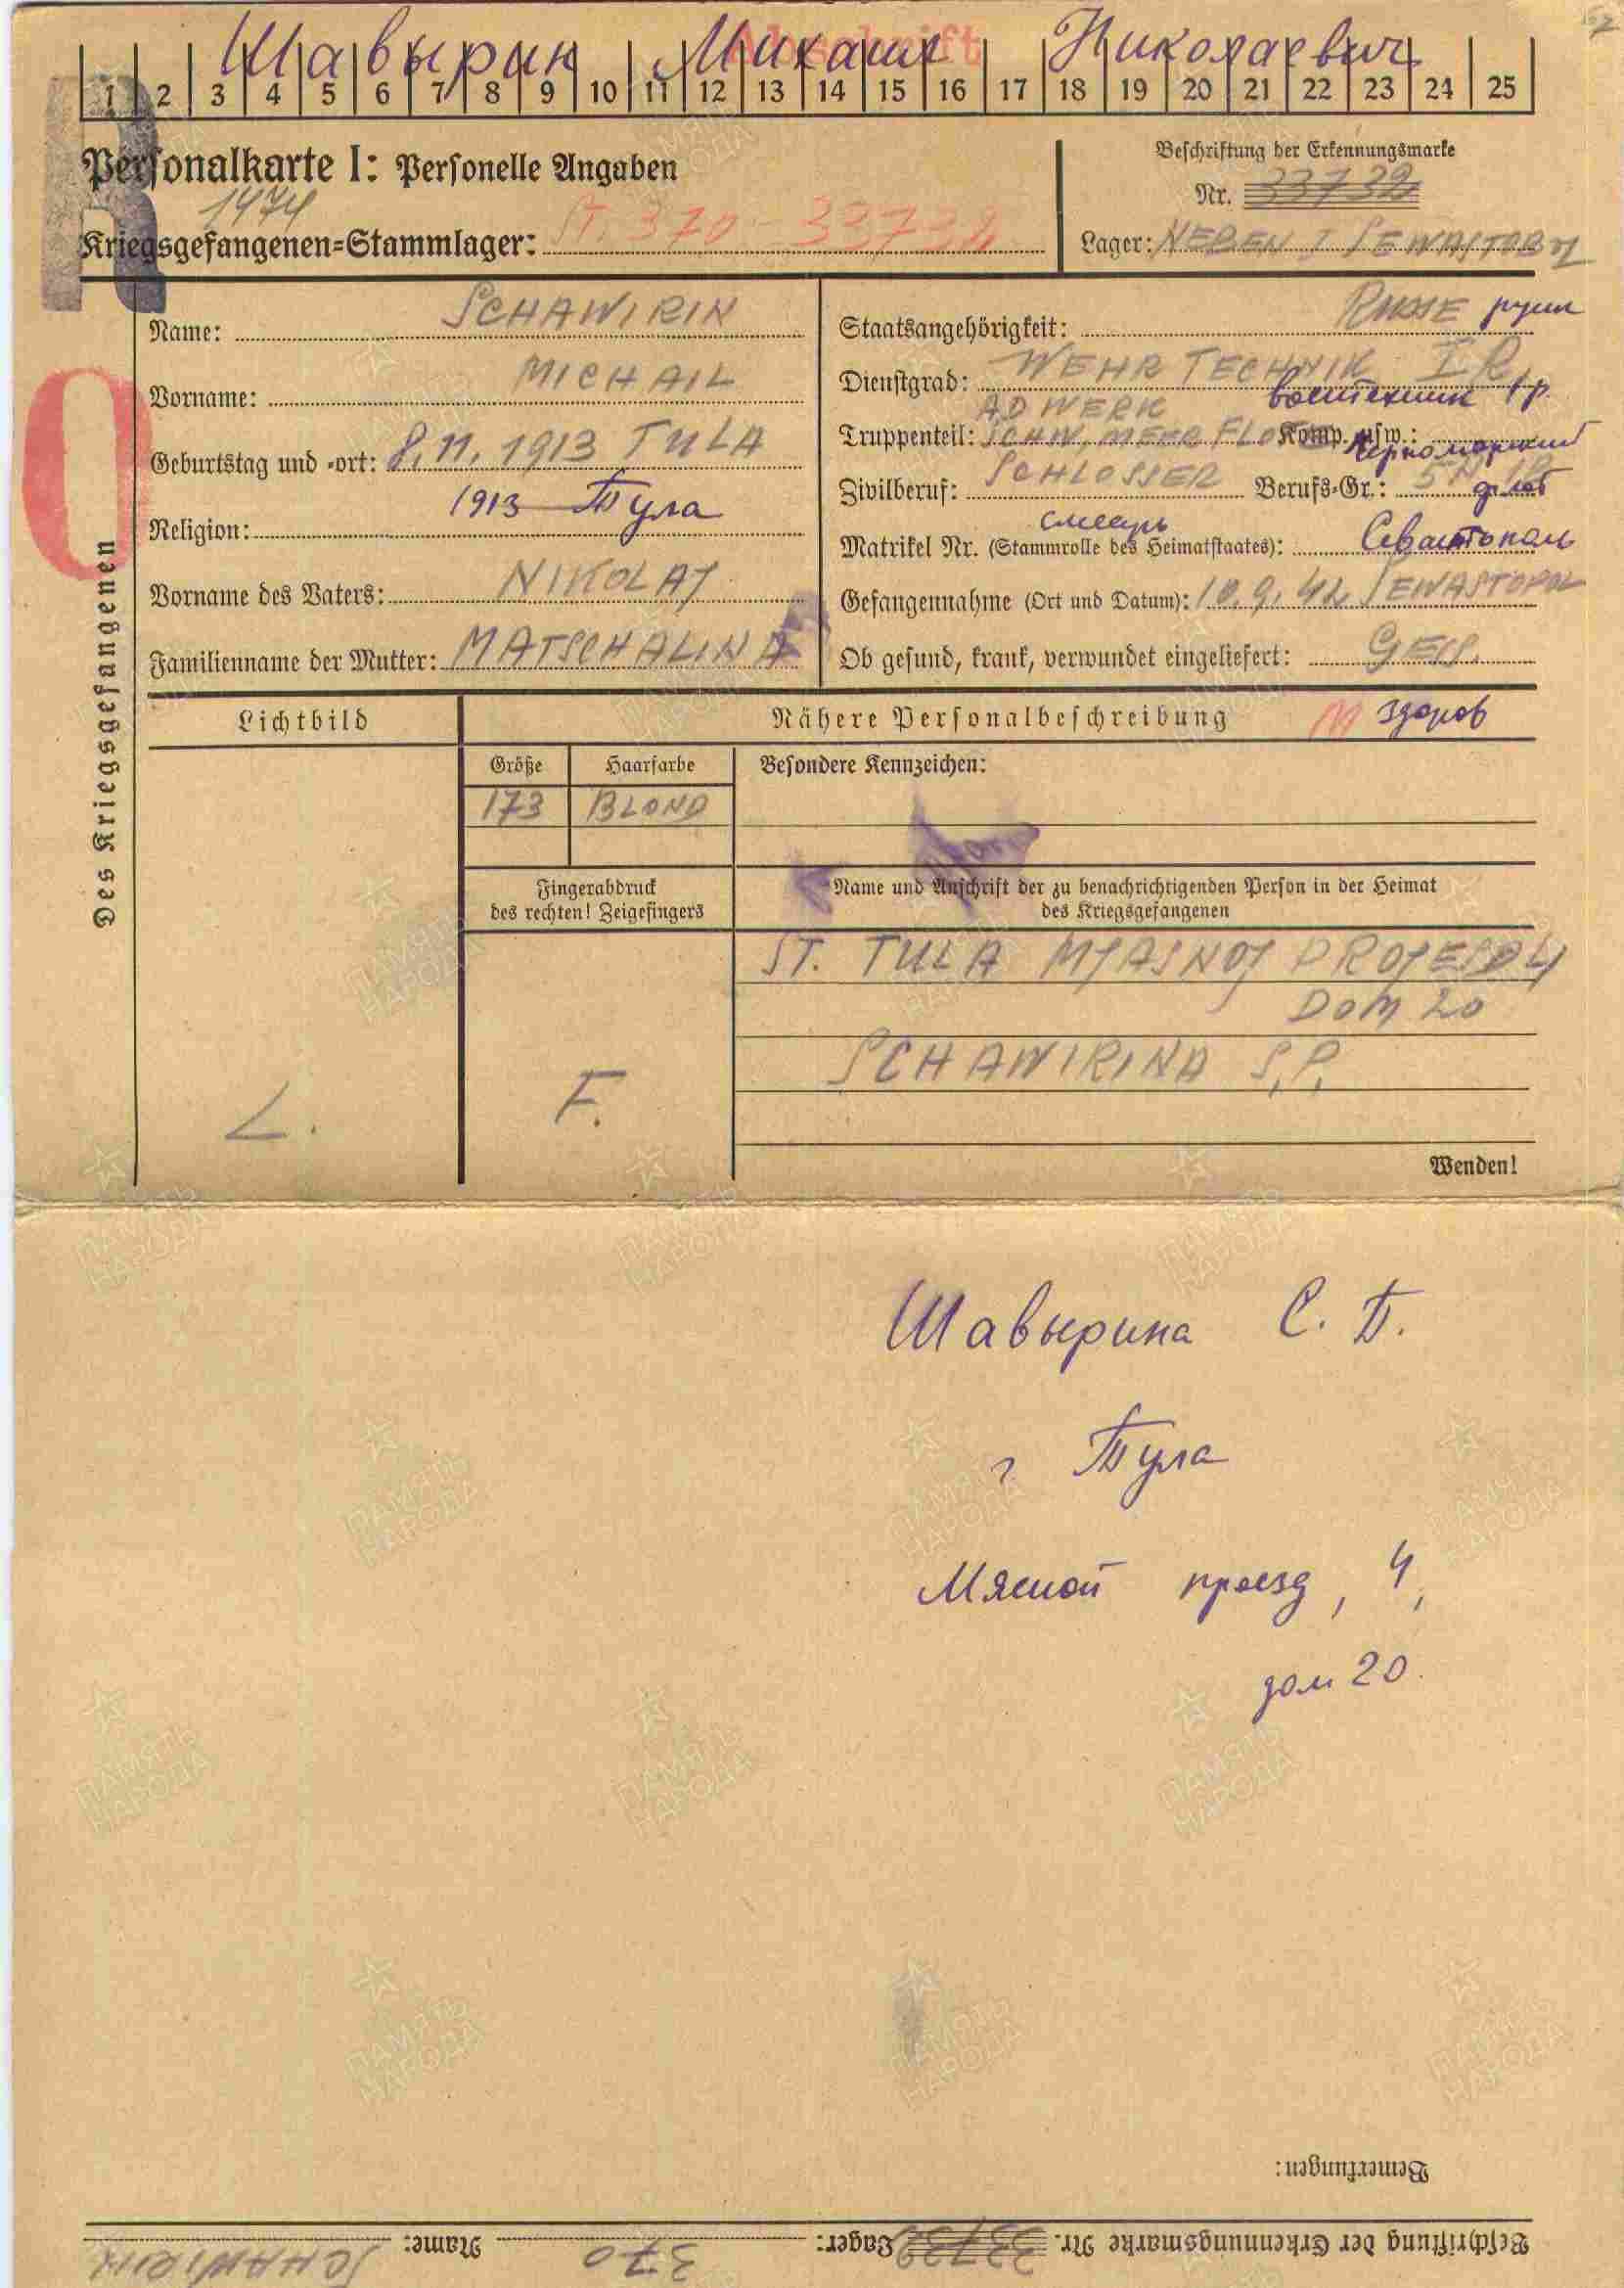 Шавырин Михаил Николаевич
Abschrift
1 2 3 4 5 6 7 8 9 10 11 12 13 14 15 16 17 18 19 20 21 22 23 24 25
R
Personalkarte I: Personelle Angaben
1474
Kriegsgefangenen=Stammlager: St. 370 - 33732
Beschriftung der Erkennungsmarke
Nr. 33732
Lager: NEBEN I SEWASTOPOL
Des Kriegsgefangenen
Name: SCHAWIRIN
Vorname: MICHAIL
Geburtstag und =ort: 8.11.1913 TULA
1913 Тула
Religion:
Vorname des Vaters: NIKOLAJ
Familienname der Mutter: MATSCHALINA
Staatsangehörigkeit: RUSSE русск
Dienstgrad: WEHRTECHNIK I R.
воентехник 1 р.
Truppenteil: SCHW. MEER FLOTTE Komp. usw.:
Черноморский флот
Zivilberuf: SCHLOSSER Berufs=Gr.:
слесарь
Matrikel Nr. (Stammrolle des Heimatstaates):
Севастополь
Gefangennahme (Ort und Datum): 10.9.42 SEWASTOPOL
Ob gesund, krank, verwundet eingeliefert: GES.
здоров
Lichtbild
Nähere Personalbeschreibung
Größe
Haarfarbe
Besondere Kennzeichen:
173
BLOND
Fingerabdruck
des rechten! Zeigefingers
Name und Anschrift der zu benachrichtigenden Person in der Heimat
des Kriegsgefangenen
ST. TULA MJASNOJ PROJESD 4
DOM 20
SCHAWIRINA S.P.
L.
F.
Wenden!
Шавырина С. П.
г Тула
Мясной проезд, 4,
дом 20.
Bemerkungen:
Beschriftung der Erkennungsmarke Nr. 33732 Lager: 370 Name: SCHAWIRIN
ПАМЯТЬ НАРОДА